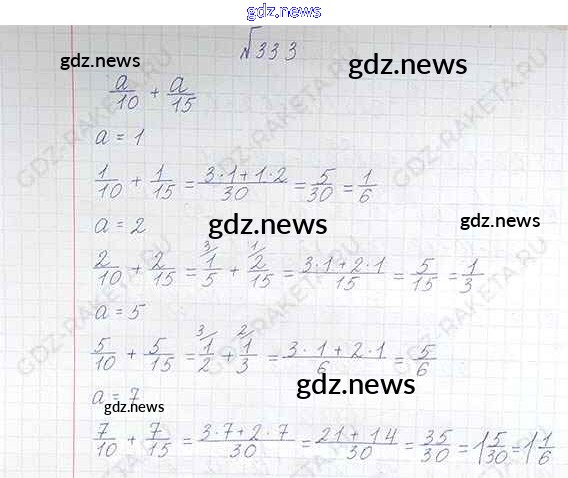 gdz.news
№333
gdz.news gdz.news
a/10 + a/15
a = 1
1/10 + 1/15 = (3·1+1·2)/30 = 5/30 = 1/6
a = 2
gdz.news gdz.news
2/10 + 2/15 = ³⁄1/5 + ¹⁄2/15 = (3·1+2·1)/15 = 5/15 = 1/3
a = 5
5/10 + 5/15 = ³⁄1/2 + ²⁄1/3 = (3·1+2·1)/6 = 5/6
gdz.news
a = 7
gdz.news
7/10 + 7/15 = (3·7+2·7)/30 = (21+14)/30 = 35/30 = 1 5/30 = 1 1/6
GDZ-RAKETA.RU